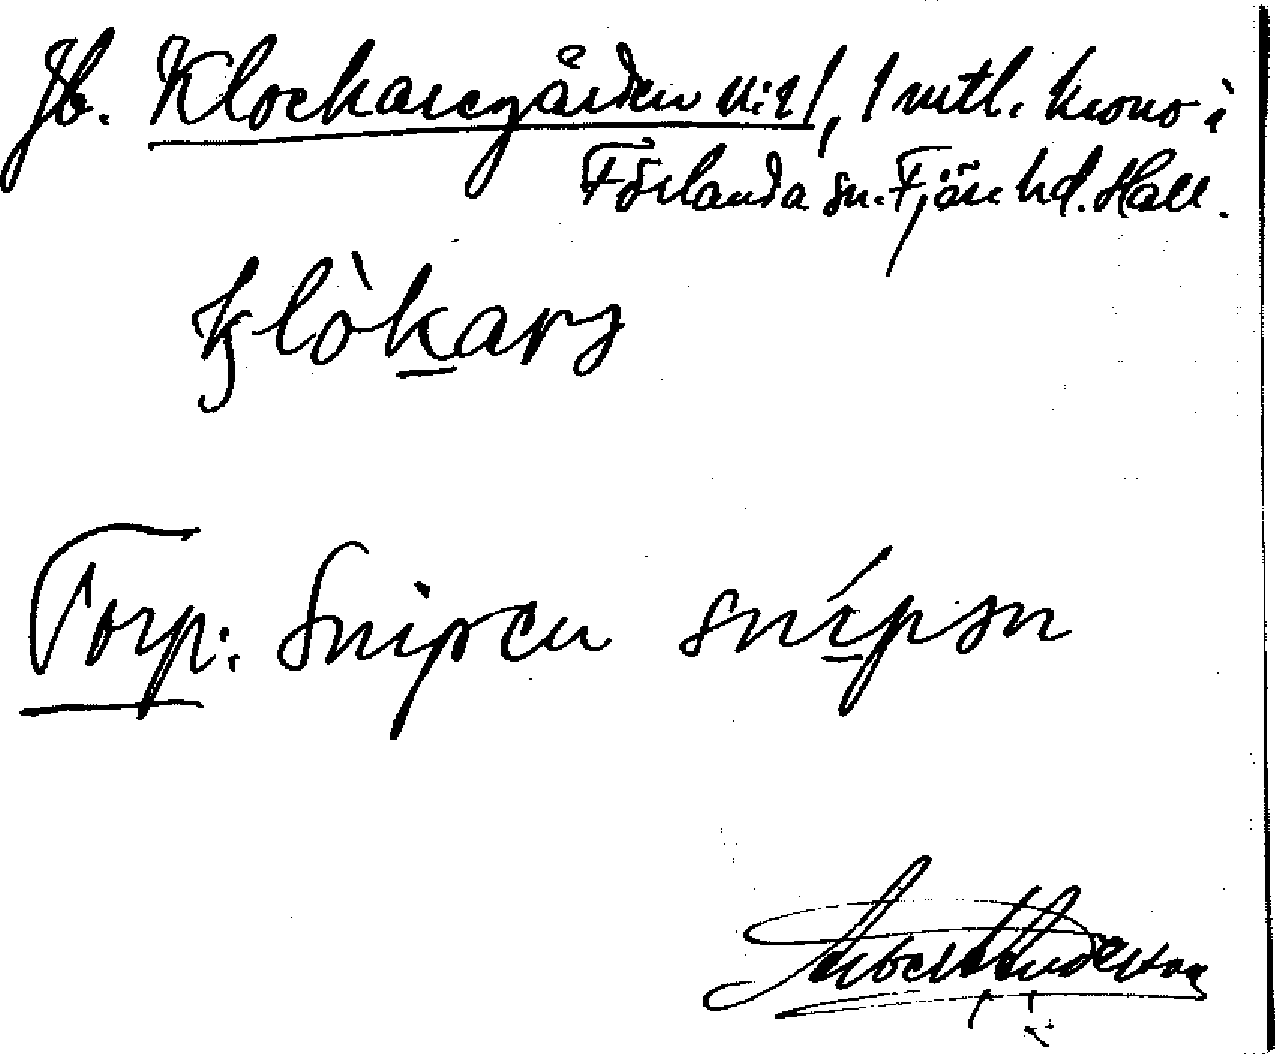 Jb. Klockaregården n:r 1, 1 mtl. krono i
Förlanda sn. Fjäre hd. Hall.
klòkars
Torp: Snipen snípən